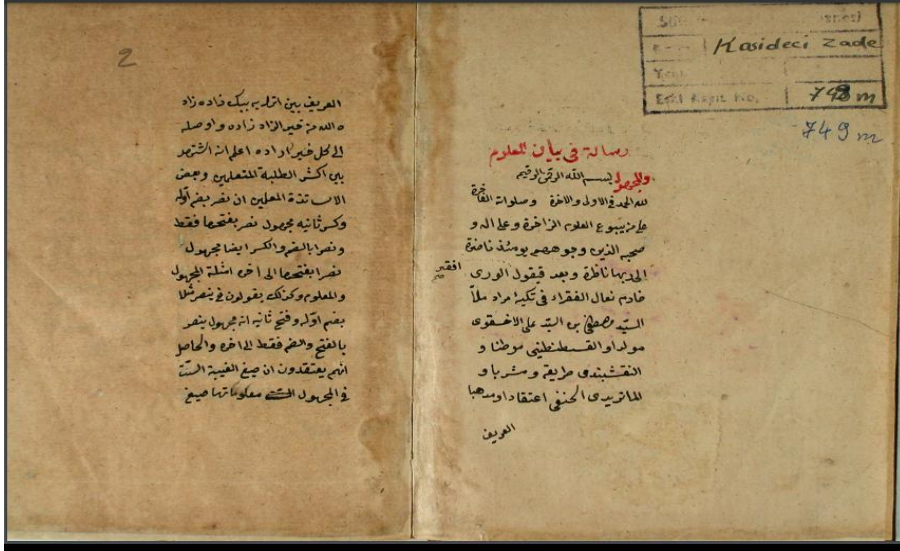 Kasideci Zade
Eski Kayıt No.
749 m
رسالة في بيان المعلوم
والمجهول بسم الله الرحمن الرحيم
لله الحمد في الاولى والاخرة وصلوات الفاخرة
على من ينبوع العلوم الزاخرة وعلى اله و
صحبه الذين وجوههم يومئذ ناضرة
الى ربها ناظرة وبعد فيقول افقر الورى
خادم نعال الفقراء في تكية مراد ملا
السيد مصطفى بن السيد علي الاخسقوى
مولدا والقسطنطيني موطنا و
النقشبندى طريقة ومشربا و
الماتريدى الحنفى اعتقادا ومذهبا
العريف
2
العريف بين اقرانه ببيك فاده زاد
ه الله من خير الزاد زاده واوصله
الى كل خير اراده اعلم انه اشتهر
بين اكثر الطلبة المتعلمين وبعض
الاساتذة المعلمين ان نصر بضم اوله
وكسر ثانيه مجهول نصر بفتحهما فقط
ونصرا بالضم والكسر ايضا مجهول
نصرا بفتحهما الى اخره امثلة المجهول
والمعلوم وكذلك يقولون في ينصر مثلا
بضم اوله وفتح ثانيه انه مجهول ينصر
بالفتح والضم فقط الى اخره والحاصل
انهم يعتقدون ان صيغ الغيبة الست
في المجهول معلوماتها صيغ